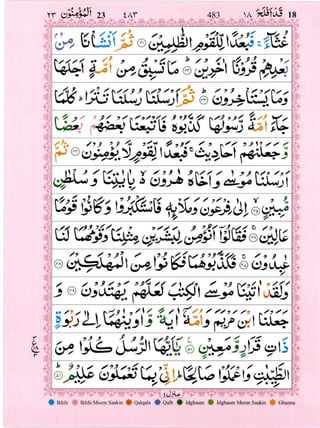 ٢٣ ٱلْمُؤْمِنُوْنَ 23 ٤٨٣ 483 ١٨ قَدْ اَفْلَحَ 18
غُثَآءً ۚ فَبُعْدًا لِّلْقَوْمِ الظّٰلِمِيْنَ ﴿٤١﴾ ثُمَّ اَنْشَاْنَا مِنْۢ
بَعْدِهِمْ قُرُوْنًا اٰخَرِيْنَ ﴿٤٢﴾ مَا تَسْبِقُ مِنْ اُمَّةٍ اَجَلَهَا
وَمَا يَسْتَاْخِرُوْنَ ﴿٤٣﴾ ثُمَّ اَرْسَلْنَا رُسُلَنَا تَتْرَا ۚ كُلَّمَا
جَآءَ اُمَّةً رَّسُوْلُهَا كَذَّبُوْهُ فَاَتْبَعْنَا بَعْضَهُمْ بَعْضًا
وَّجَعَلْنٰهُمْ اَحَادِيْثَ ۚ فَبُعْدًا لِّقَوْمٍ لَّا يُؤْمِنُوْنَ ﴿٤٤﴾ ثُمَّ
اَرْسَلْنَا مُوْسٰى وَاَخَاهُ هٰرُوْنَ ۙ بِاٰيٰتِنَا وَسُلْطٰنٍ
مُّبِيْنٍ ﴿٤٥﴾ اِلٰى فِرْعَوْنَ وَمَلَا۟ئِهٖ فَاسْتَكْبَرُوْا وَكَانُوْا قَوْمًا
عَالِيْنَ ﴿٤٦﴾ فَقَالُوْٓا اَنُؤْمِنُ لِبَشَرَيْنِ مِثْلِنَا وَقَوْمُهُمَا لَنَا
عٰبِدُوْنَ ﴿٤٧﴾ فَكَذَّبُوْهُمَا فَكَانُوْا مِنَ الْمُهْلَكِيْنَ ﴿٤٨﴾
وَلَقَدْ اٰتَيْنَا مُوْسَى الْكِتٰبَ لَعَلَّهُمْ يَهْتَدُوْنَ ﴿٤٩﴾ وَ
جَعَلْنَا ابْنَ مَرْيَمَ وَاُمَّهٗٓ اٰيَةً وَّاٰوَيْنٰهُمَآ اِلٰى رَبْوَةٍ
ذَاتِ قَرَارٍ وَّمَعِيْنٍ ﴿٥٠﴾ يٰٓاَيُّهَا الرُّسُلُ كُلُوْا مِنَ
الطَّيِّبٰتِ وَاعْمَلُوْا صَالِحًا ؕ اِنِّيْ بِمَا تَعْمَلُوْنَ عَلِيْمٌ ﴿٥١﴾
منزل ٤
Ikhfa Ikhfa Meem Saakin Qalqala Qalb Idghaam Idghaam Meem Saakin Ghunna